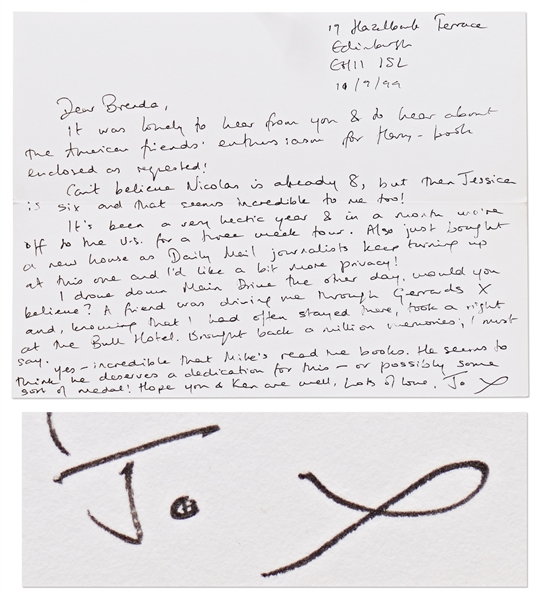 19 Hazelbank Terrace
Edinburgh
EH11 1SL
10/9/99
Dear Brenda,
It was lovely to hear from you & to hear about
the American friends' enthusiasm for Harry - book
enclosed as requested!
Can't believe Nicolas is already 8, but then Jessica
is six and that seems incredible to me too!
It's been a very hectic year & in a month we're
off to the U.S. for a three week tour. Also just bought
a new house as Daily Mail journalists keep turning up
at this one and I'd like a bit more privacy!
I drove down Main Drive the other day, would you
believe? A friend was driving me through Gerrards X
and, knowing that I had often stayed there, took a right
at the Bull Hotel. Brought back a million memories, I must
say.
Yes - incredible that Mike's read the books. He seems to
think he deserves a dedication for this - or possibly some
sort of medal! Hope you & Ken are well, Lots of love, Jo X
Jo X